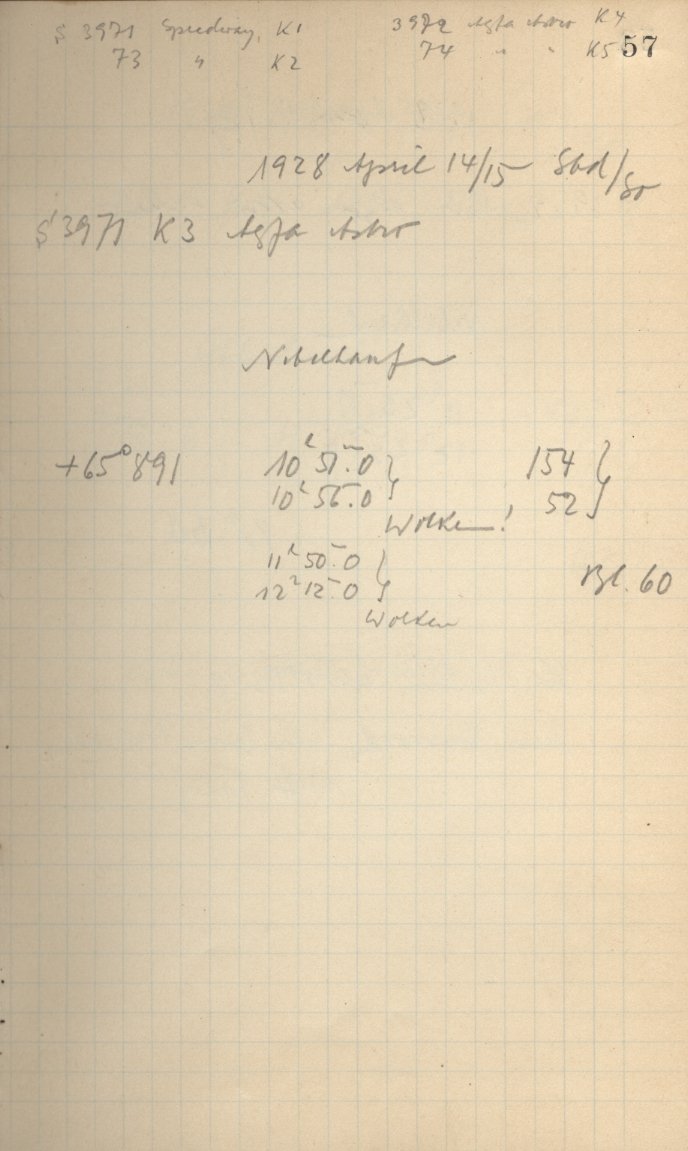 S 3971 Speedway, K1 3972 Agfa Astro K4
73 " K2 74 " " K5 57
1928 April 14/15 Sbd/So
S 3971 K3 Agfa Astro
Nebelhaufen
+65°891 10h 51m.0 } 154 }
10h 56m.0 } 52 }
Wolken!
11h 50m.0 }
12h 12m.0 } Bl. 60
Wolken